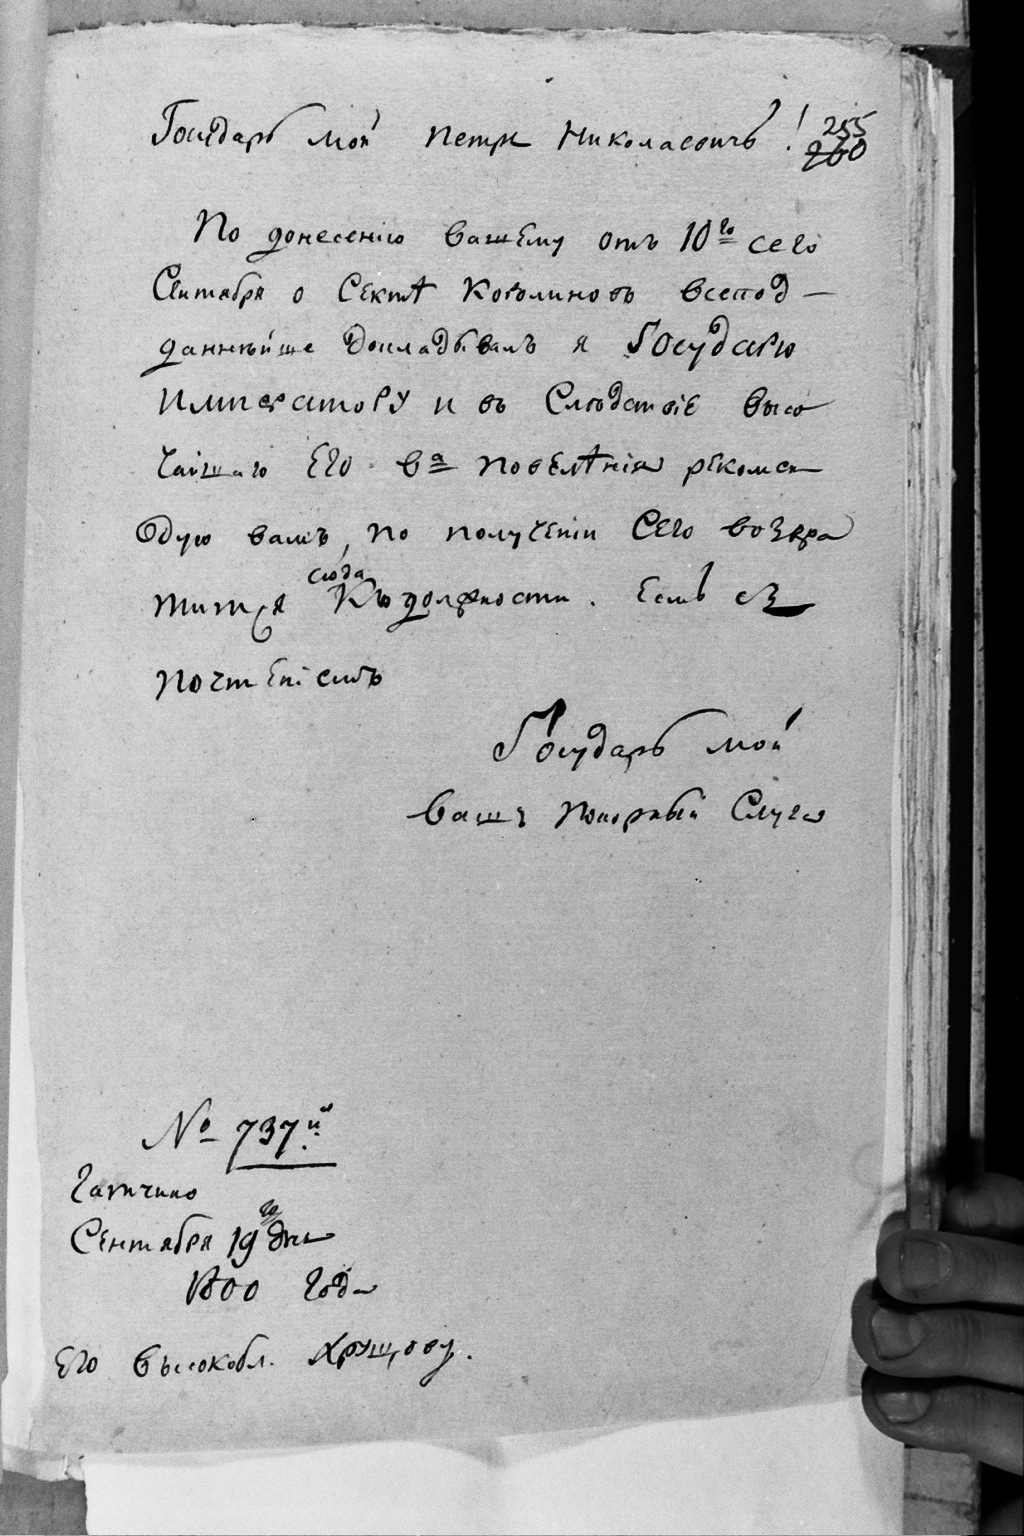 Государь мой Петръ Николаевичъ!
255
260
По донесенію вашему отъ 10го сего
Сентября о Сектѣ Коволиновъ всепод-
даннѣйше Докладывалъ я Государю
Императору и въ Слѣдствіе высо
чайшаго Его Ва повелѣнія рекомен
дую вамъ, по полученіи Сего возвра
сюда
титься Къ должности. Есмь съ
почтеніемъ
Государь мой
вашъ покорный Слуга
№ 737й
Гатчино
Сентября 19го дня
1800 Года
Его высокобл. Хрущову.